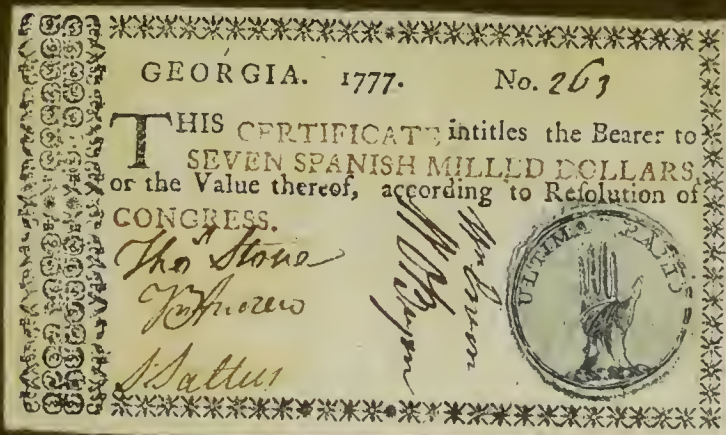 GEORGIA. 1777. No. 263
THIS CERTIFICATE intitles the Bearer to
SEVEN SPANISH MILLED DOLLARS,
or the Value thereof, according to Reſolution of
CONGRESS.
Thoˢ Stone
S Saltus
ULTIMA RATIO